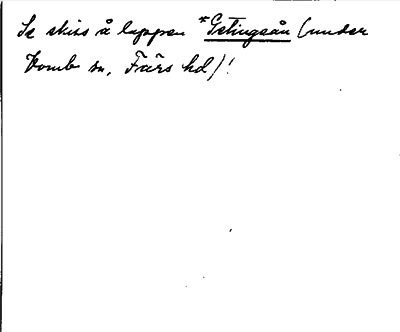 Se skiss å lappen *Getingeån (under
Vomb sn, Färs hd)!